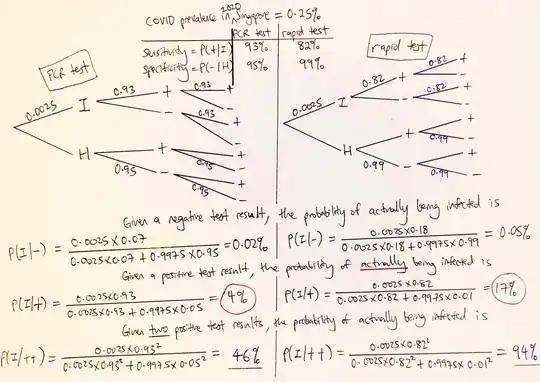 COVID prevalence in 2020 Singapore = 0.25%
PCR test rapid test
sensitivity = P(+/I) 93% 82%
specificity = P(-/H) 95% 99%
PCR test
rapid test
0.0025 I 0.93 + 0.93 +
-
- 0.93 +
-
H + +
0.95 -
0.95 - +
0.95 -
0.0025 I 0.82 + 0.82 +
-
- 0.82 +
-
H + +
0.99 -
0.99 - +
0.99 -
Given a negative test result, the probability of actually being infected is
P(I/-) = 0.0025×0.07 / 0.0025×0.07 + 0.9975×0.95 = 0.02%
P(I/-) = 0.0025×0.18 / 0.0025×0.18 + 0.9975×0.99 = 0.05%
Given a positive test result, the probability of actually being infected is
P(I/+) = 0.0025×0.93 / 0.0025×0.93 + 0.9975×0.05 = 4%
P(I/+) = 0.0025×0.82 / 0.0025×0.82 + 0.9975×0.01 = 17%
Given two positive test results, the probability of actually being infected is
P(I/++) = 0.0025×0.93² / 0.0025×0.93² + 0.9975×0.05² = 46%
P(I/++) = 0.0025×0.82² / 0.0025×0.82² + 0.9975×0.01² = 94%